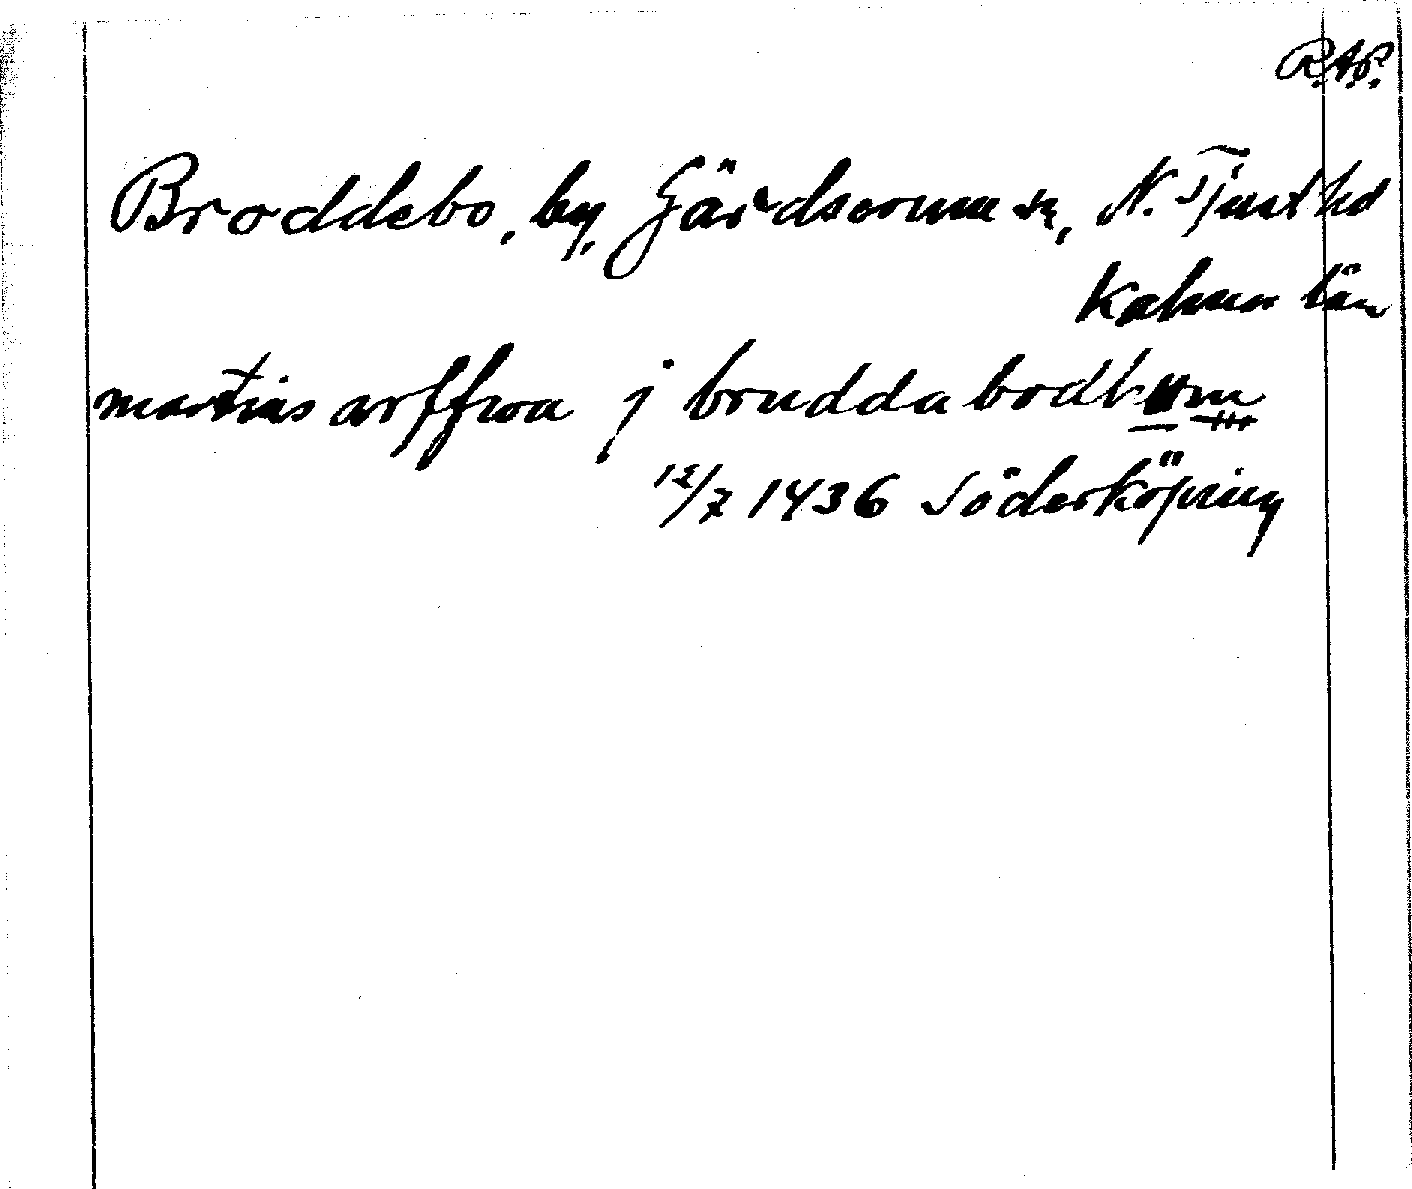 R.A.P.
Broddebo, by, Gärdserums sn, N. Tjust hd
Kalmar län
martins arffwa j brudda bodhum
12/7 1436 Söderköping